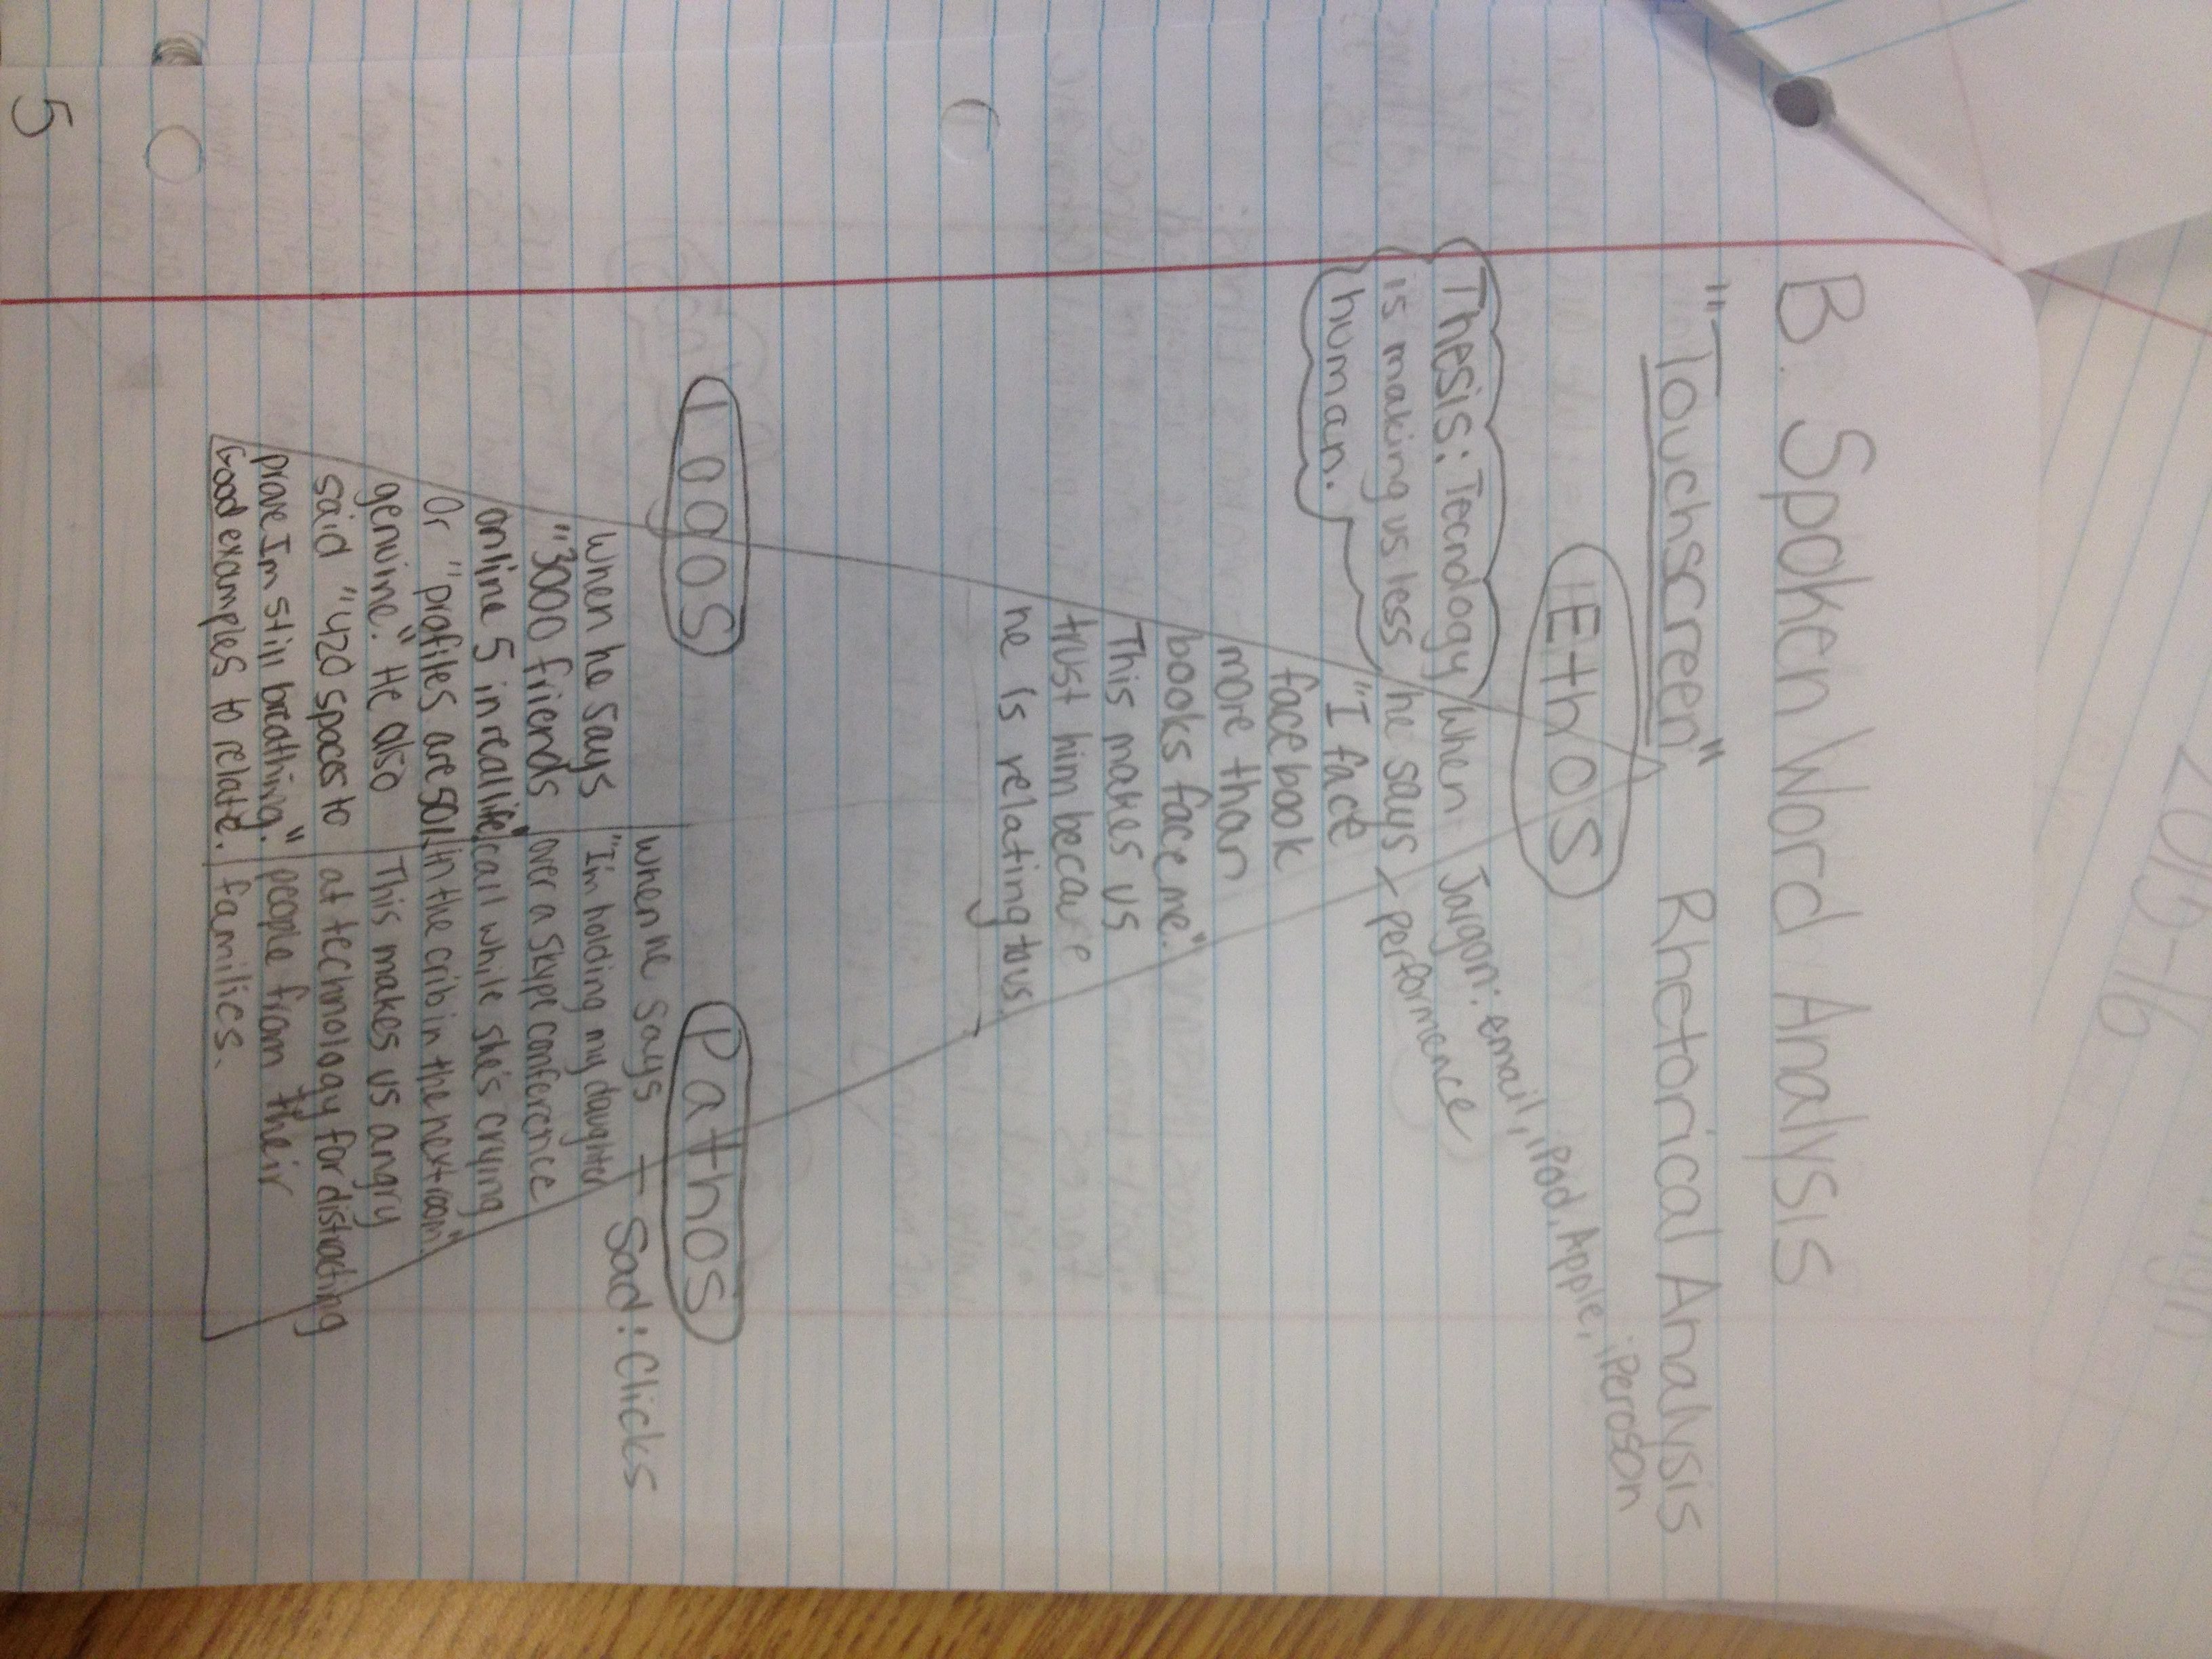 B. Spoken Word Analysis
"Touchscreen" Rhetorical Analysis
Ethos
Jargon: email, iPod, Apple, iPeroson
performence
Thesis: Tecnology
is making us less
human.
When
he says
"I face
facebook
more than
books face me."
This makes us
trust him because
he is relating to us
Logos
When he says
"3000 friends
online 5 in real life,"
Or "profiles are sol
genuine." He also
said "420 spaces to
prove Im still breathing."
Good examples to relate.
Pathos
When he says - Sad: Clicks
"I'm holding my daughter
over a skype conference
call while she's crying
in the crib in the next room"
This makes us angry
at technology for distracting
people from their
families.
5
2015-16